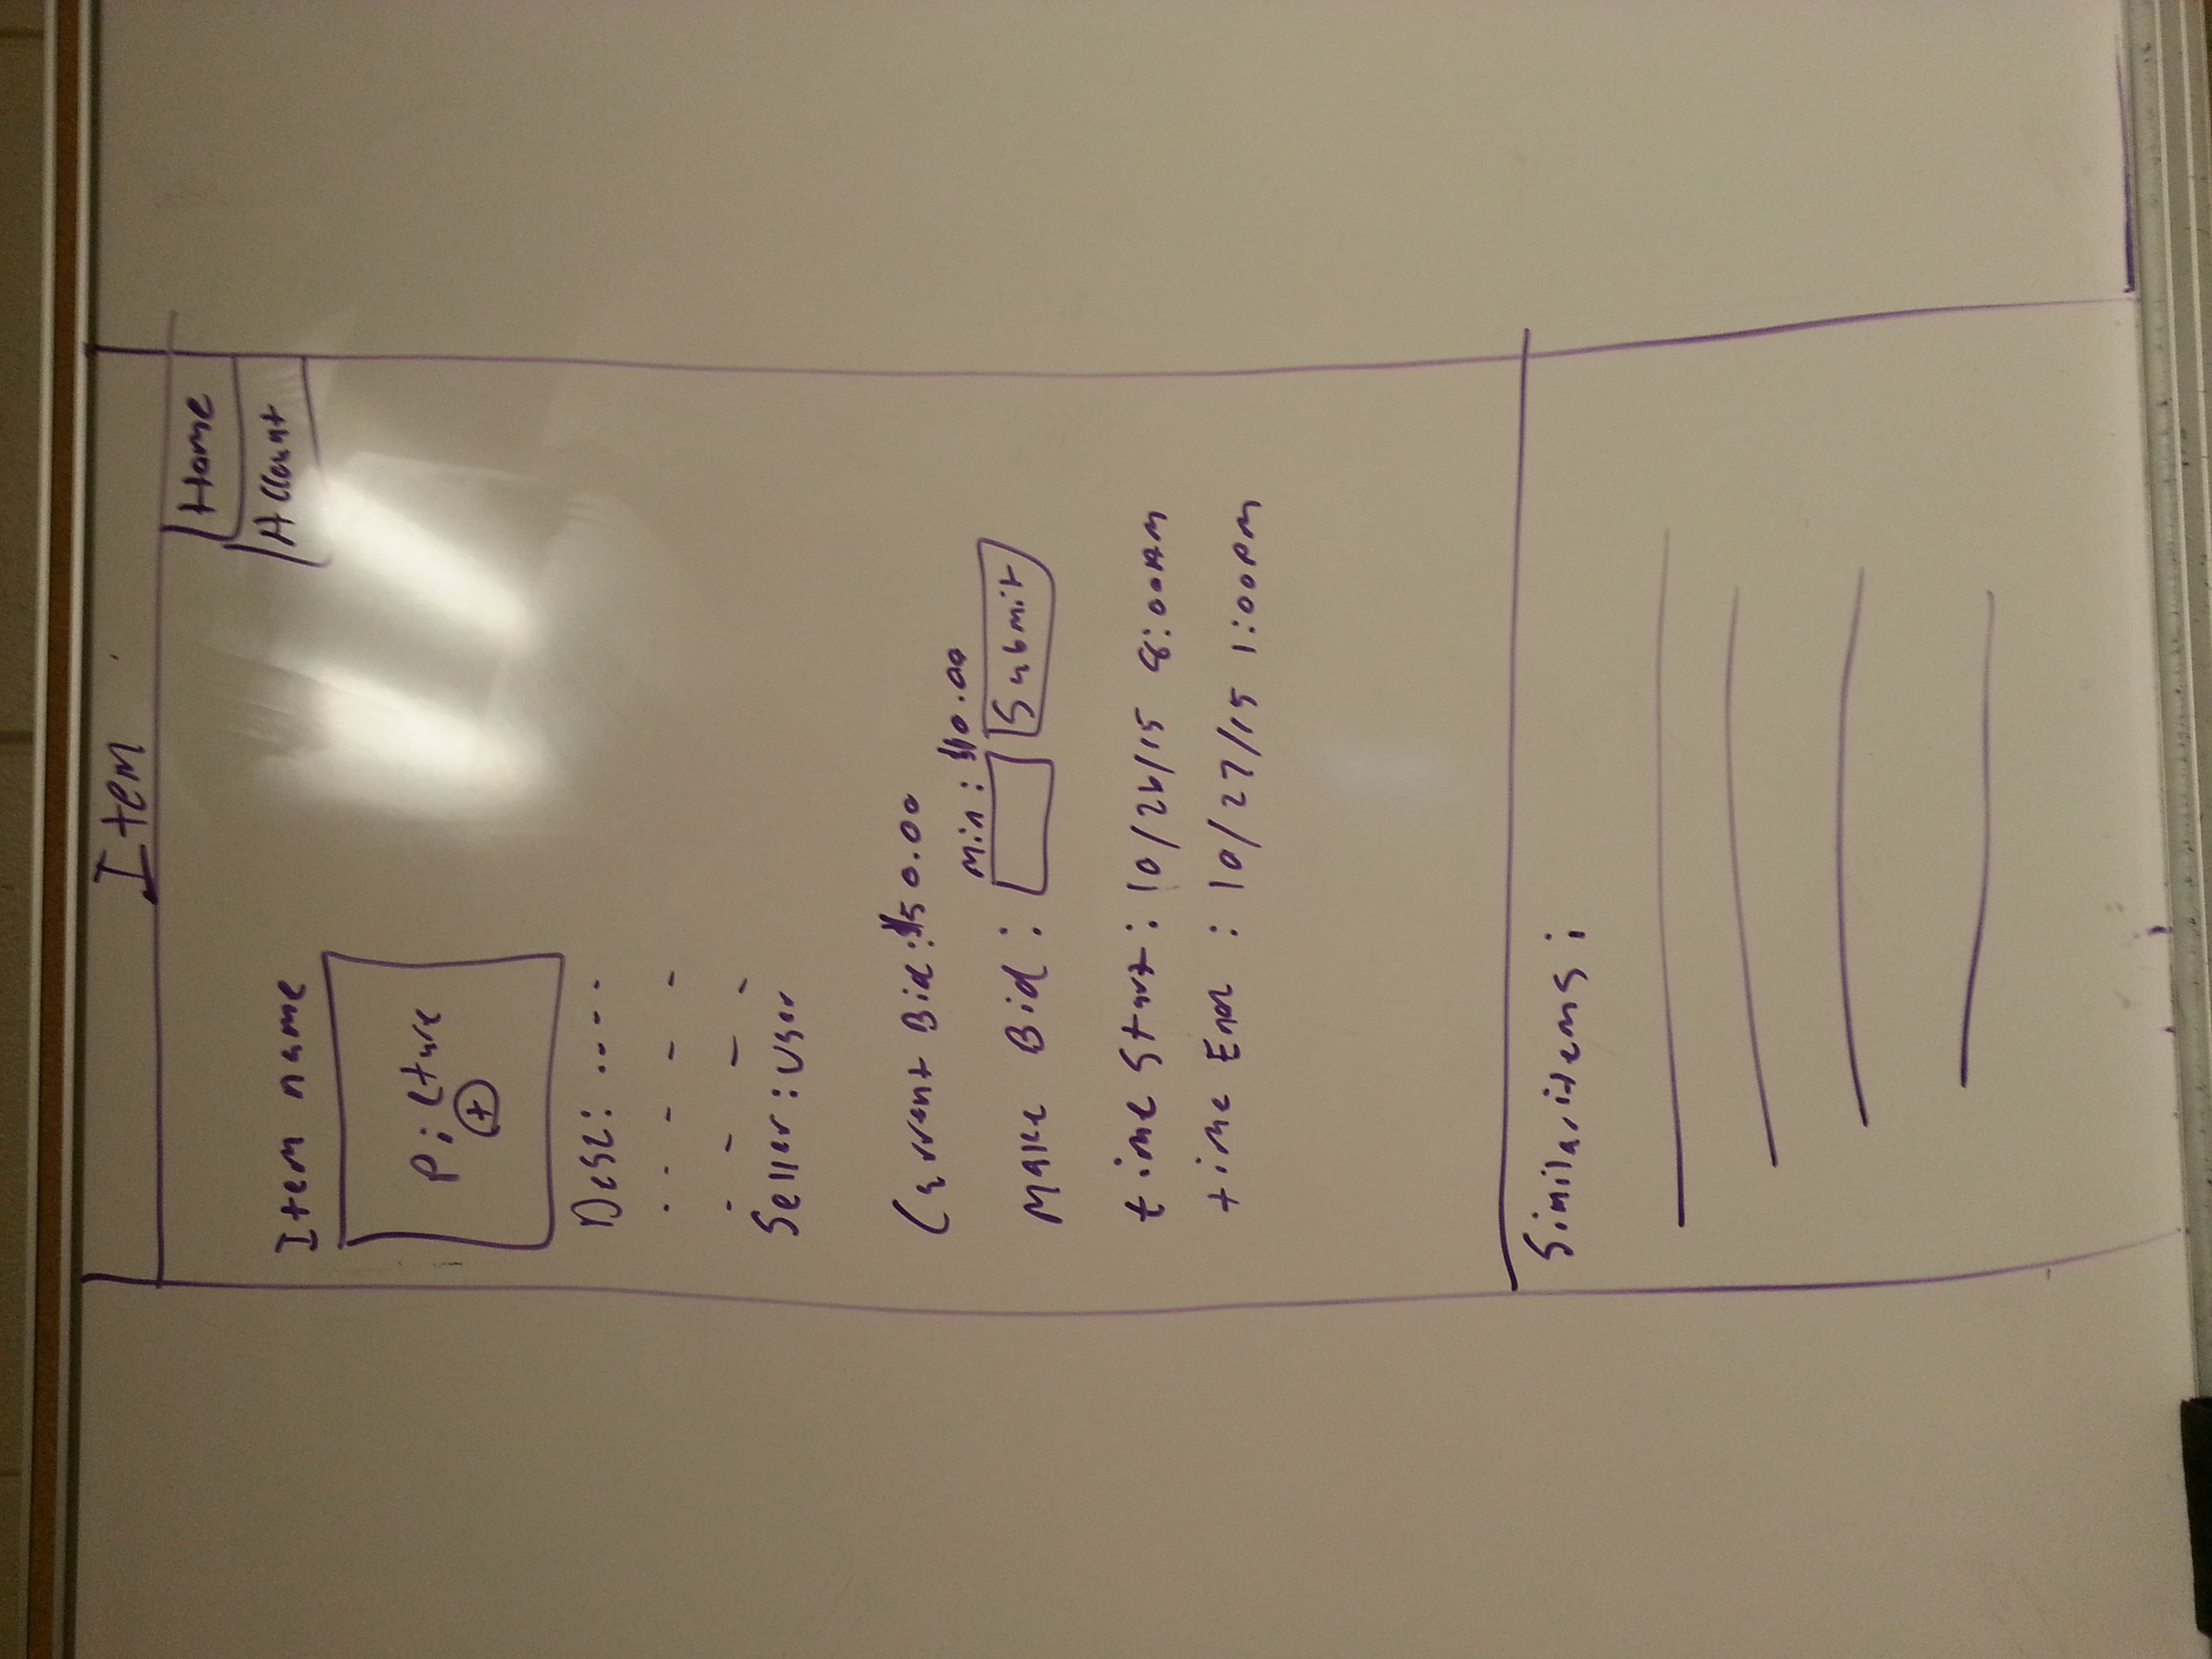 Item
Home
Account
Item name
Picture
+
Desc: ----
- - - - -
- - - -
Seller: user
Current Bid: $50.00
Min: $10.00
Make Bid: Submit
time Start: 10/26/15 8:00AM
time End : 10/27/15 1:00PM
Similar items: